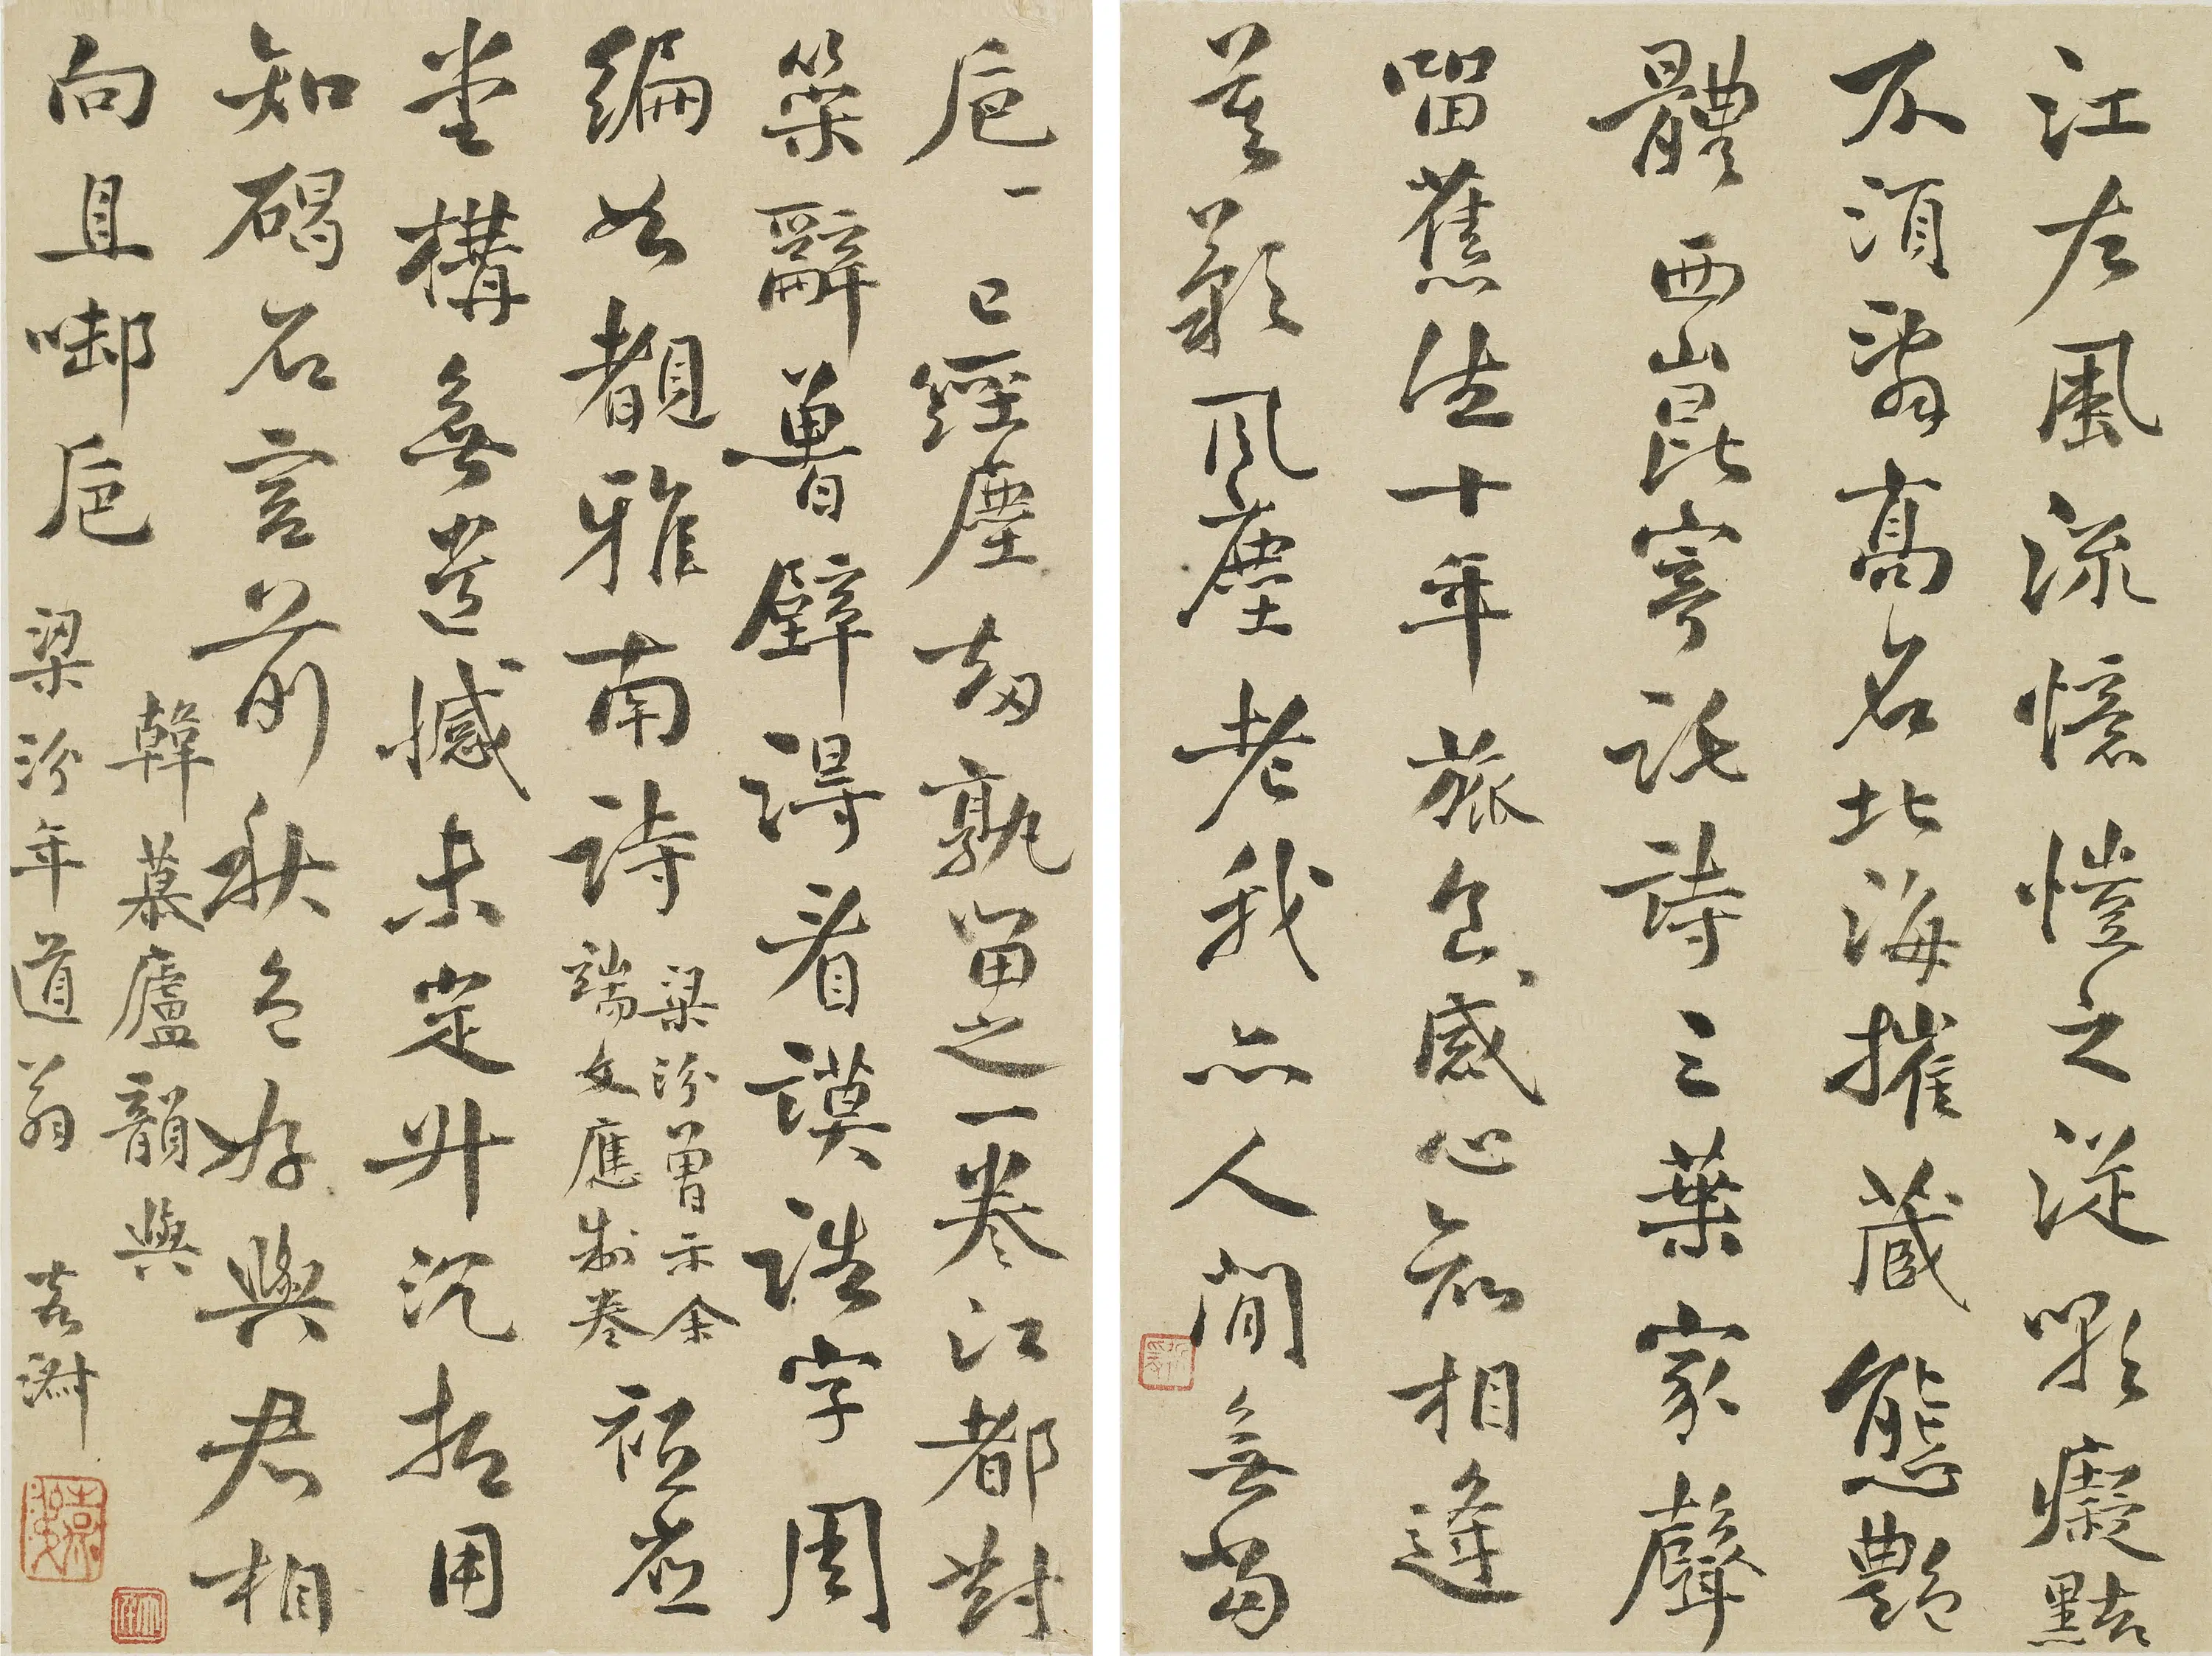 江左風流憶愷之從嗤癡黠
不須為高名北海摧藏態艷
體西崑寄託詩三葉家聲
留舊德十年旅食感心知相逢
莫歎風塵老我亦人間無當
卮
一已經塵劫孰留之一卷江都對
策辭魯壁得看謨誥字周
編如覩雅南詩
梁汾曾示余
端文應制卷
祗應
堂構無遺憾未定升沉拙用
知碣石宮前秋色好與君相
向且啣卮
韓慕廬韻與
梁汾年道翁